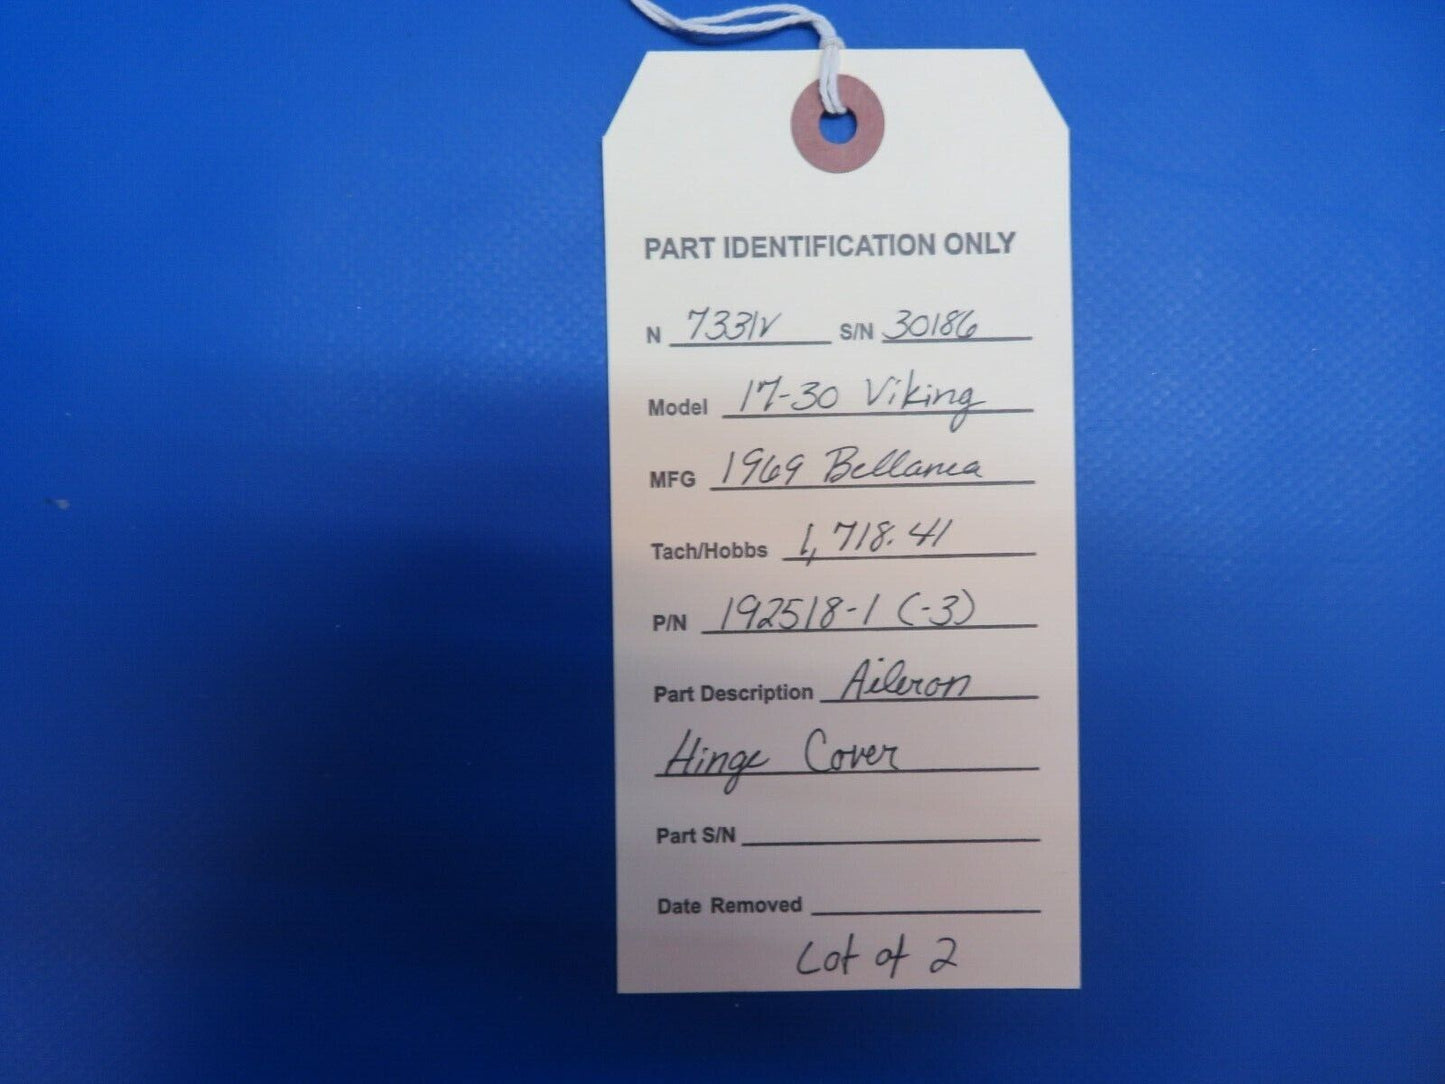 PART IDENTIFICATION ONLY
N 7331V S/N 30186
Model 17-30 Viking
MFG 1969 Bellanca
Tach/Hobbs 1,718.41
P/N 192518-1 (-3)
Part Description Aileron
Hinge Cover
Part S/N
Date Removed
Lot of 2